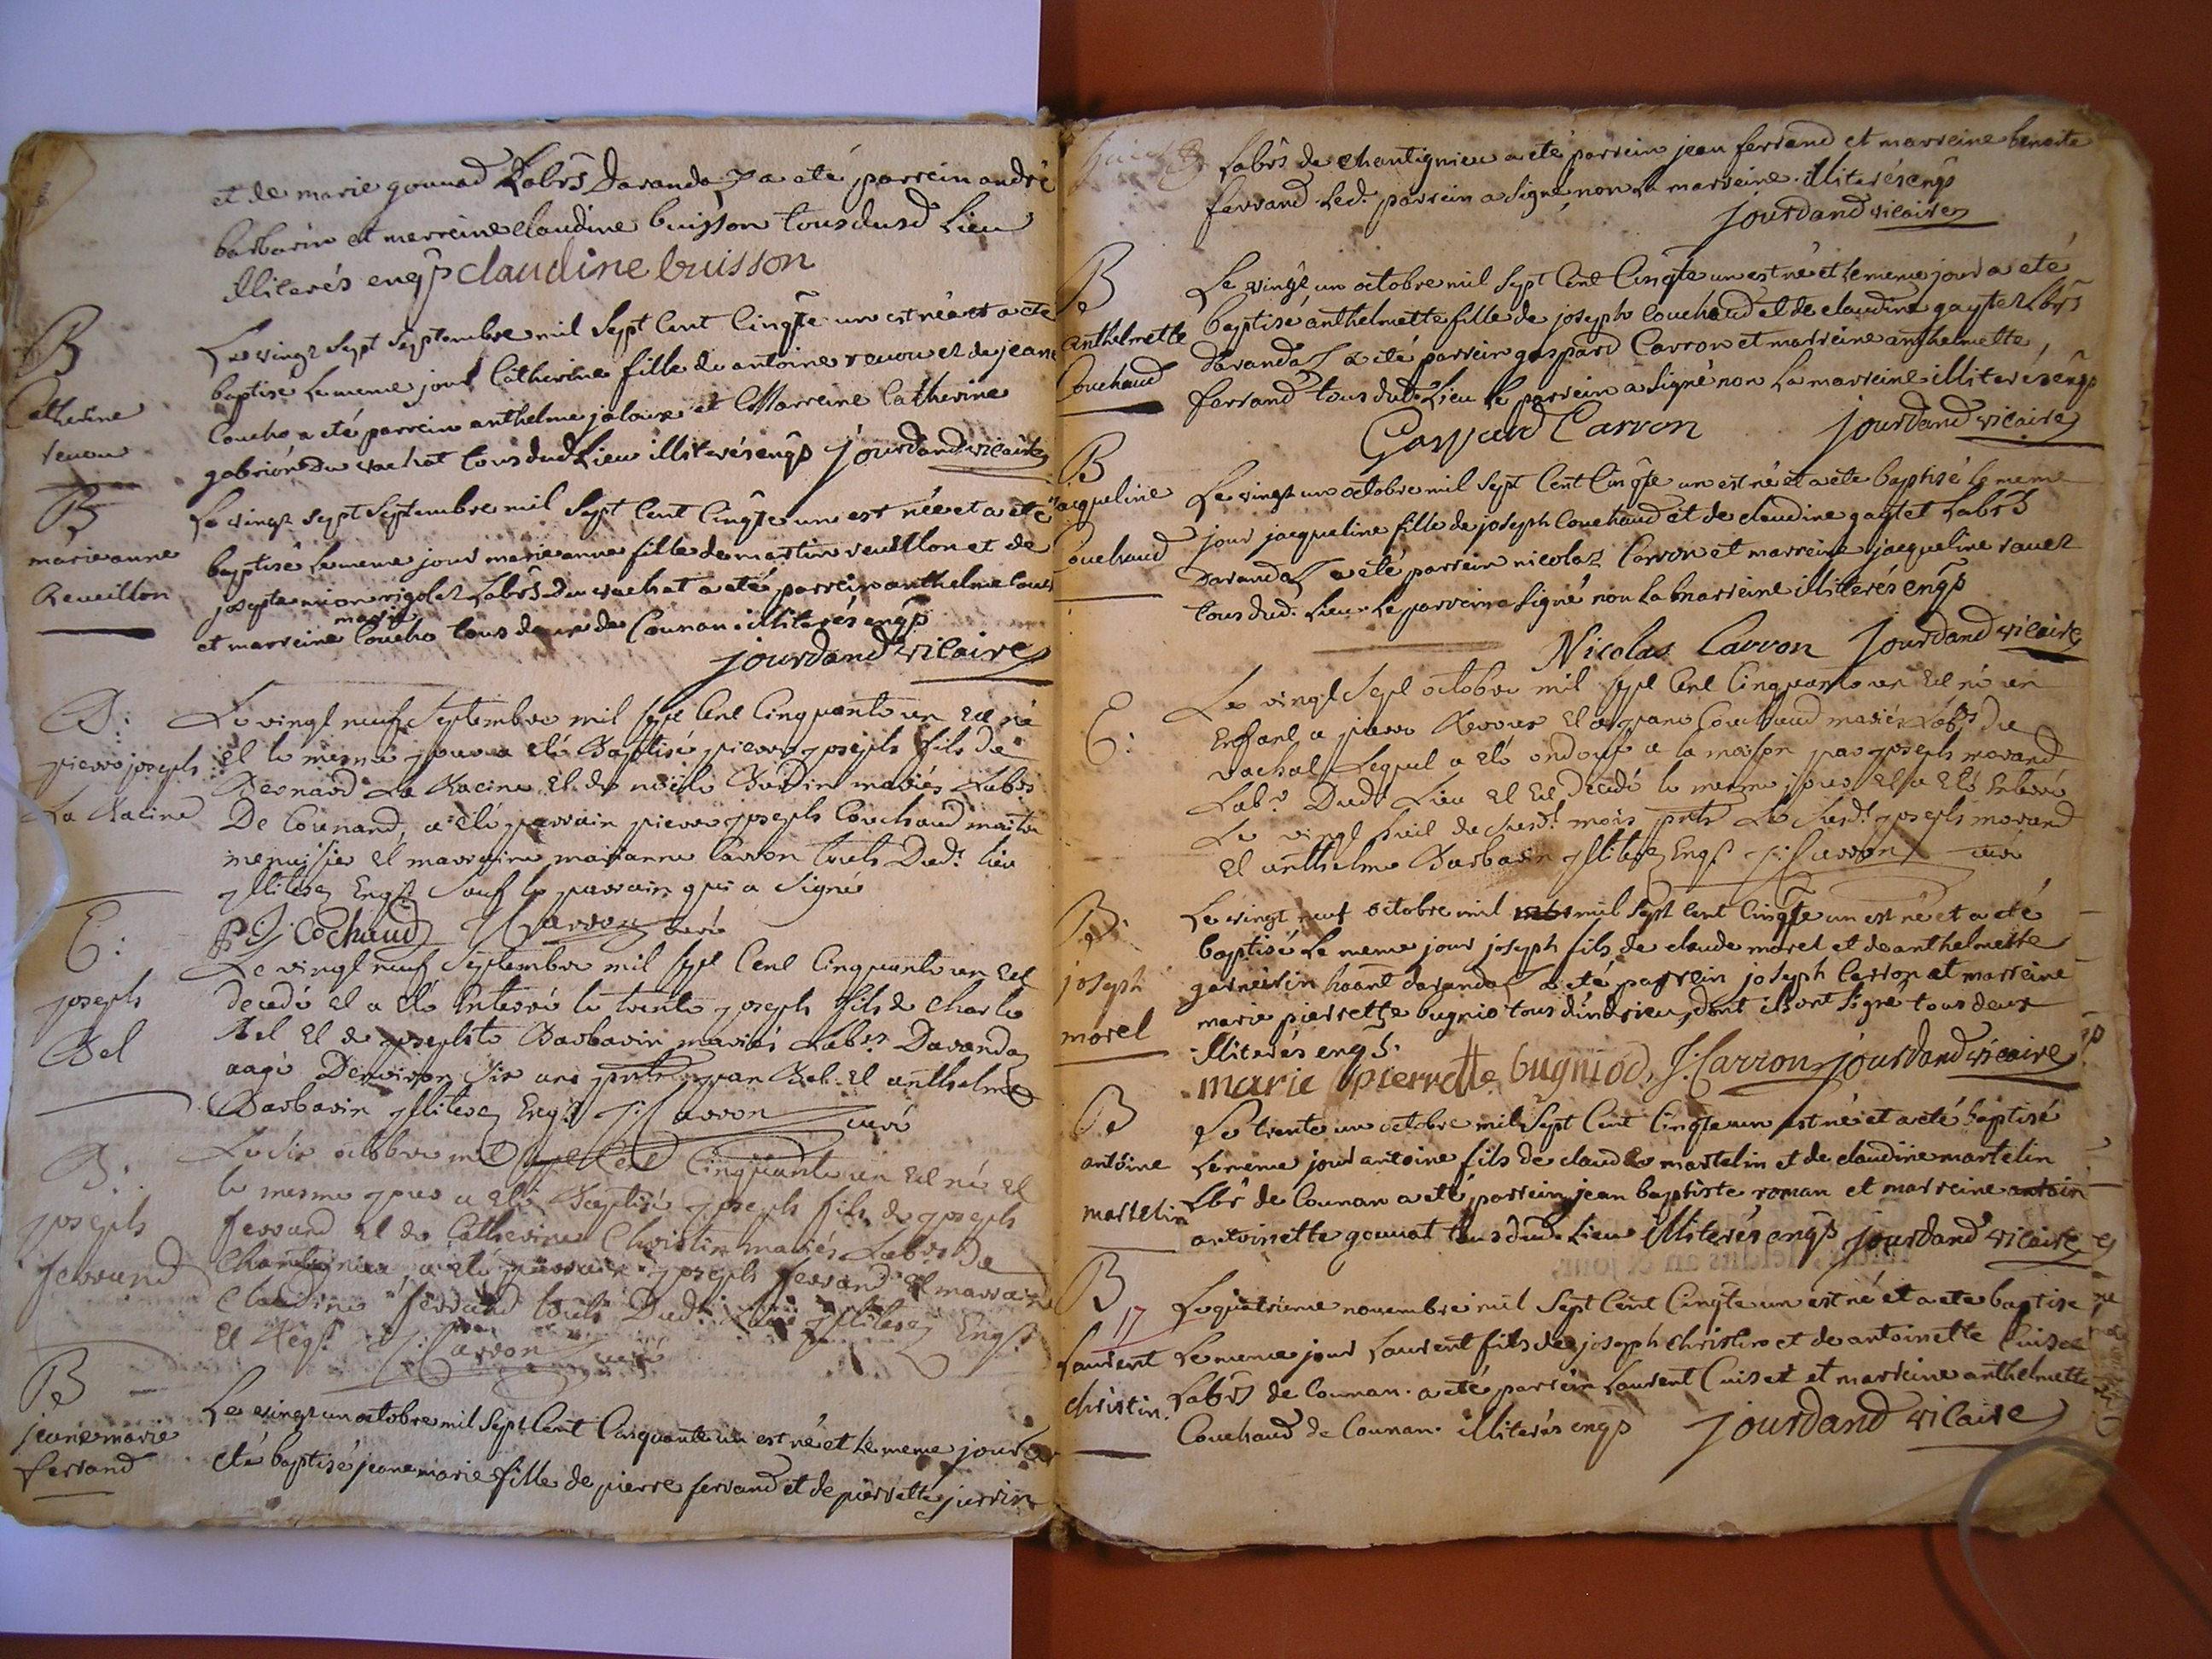 et de marie gounad Labrs daranda a eté parrein andré
barbarin et merreine claudine buisson tous dusd Lieu
illiterés enqs claudine buisson
B
Catherine
renou
Le vingt sept septembre mil sept cent cinqte un est née et a eté
baptise le meme jour Catherine fille de antoine renou et de jeane
Coucho a eté parrein anthelme jaloux et Marreine Catherine
gabrion du vachat tous dud Lieu illiterés enqs jourdand vicaire
B
marie anne
Reveillon
Le vingt sept septembre mil sept cent cinqte un est née et a eté
baptisé le meme jour marie anne fille de martin reveillon et de
josepte mion rigolet Labrs du vachat a eté parrein anthelme
et marreine marie Coucho tous deux de Counan illiterés enqs
jourdand vicaire
B:
pierre joseph
La Racine
Le vingt neuf septembre mil sept cent cinquante un est né
et le mesme jour a eté Baptisé pierre joseph fils de
Bernard La Racine et de Bardin mariés Labrs
De Counand, a eté parrain pierre joseph Couchaud maitre
menuisier et marraine marianne Carron touts Dud: lieu
illiterez Enqs sauf le parrain qui a signé
P J: Cochaud J: Carron curé
E:
joseph
Bel
Le vingt neuf septembre mil sept cent cinquante un est
decedé et a eté enterré le trente joseph fils de Charle
Bel et de josephte Barbarin mariés Labrs Daranda
aagé Denviron six ans pnts jean Bel et anthelme
Barbarin illiterez Enqs J: Carron curé
B:
joseph
ferrand
Le six octobre mil sept cent cinquante un est né et
le mesme jour a eté Baptisé joseph fils de joseph
ferrand et de Catherine Christin mariés Labrs De
Chantignieu, a eté parrain joseph ferrand et marraine
Claudine ferrand touts Dud: lieu illiterez Enqs
et Reqs J: Carron curé
B
jeane marie
ferrand
Le vingt un octobre mil sept Cent Cinquante un est né et le meme jour a
eté baptisé jeane marie fille de pierre ferrand et de pierrette juvrin
Labrs de Chantignieu a eté parrein jean ferrand et marreine benoite
ferrand Led. parrein a signé non la marreine. illiterés enqs
jourdand vicaire
B
anthelmette
Couchaud
Le vingt un octobre mil sept Cent Cinqte un est né et le meme jour a eté
baptisé anthelmette fille de joseph couchaud et de claudine gaytet Lbrs
daranda a eté parrein gaspard Carron et marreine anthelmette
ferrand tous dud. Lieu le parrein a signé non la marreine illiterés enqs
Gaspard Carron jourdand vicaire
B
jacqueline
Couchaud
Le vingt un octobre mil sept Cent Cinqte un est né et a eté baptisé le meme
jour jacqueline fille de joseph Couchaud et de claudine gaytet Labrs
daranda a eté parrein nicolaz Carron et marreine jacqueline ravet
tous dud. Lieu. Le parrein a signé non la marreine illiterés enqs
Nicolas Carron jourdand vicaire
E:
Le vingt sept octobre mil sept cent cinquante un est né un
Enfant a pierre et a jeane Couchaud mariés Labrs du
vachat Lequel a eté ondoyé a la maison par joseph morand
Labr Dud: Lieu et est decedé le mesme jour et a eté Enterré
Le vingt huit du susdt mois pnts Le susdt joseph morand
et anthelme Barbarin illiterez Enqs J: Carron curé
B.
joseph
morel
Le vingt neuf octobre mil mil sept cent Cinqte un est né et a eté
baptisé Le meme jour joseph fils de claude morel et de anthelmette
garneirin haant daranda a eté parrein joseph Carron et marreine
marie pierrette bugnio tous d'indrieu, dont ils ont signé tous deux
illiterés enqs.
marie pierrette bugniod, J: Carron jourdand vicaire
B
antoine
martelin
Le trente un octobre mil Sept Cent Cinqte un est né et a eté baptisé
Le meme jour antoine fils de claude martelin et de claudine martelin
Lbrs de Counan a eté parrein jean baptiste roman et marreine antoin
antoinette gounat tous dud. Lieu illiterés enqs jourdand vicaire
B
17
Laurent
christin.
Le quatrieme novembre mil Sept Cent Cinqte un est né et a ete baptise
Le meme jour Laurent fils de joseph christin et de antoinette Cuiset
Labrs de Counan. a eté parrein Laurent Cuiset et marreine anthelmette
Couchaud de Counan. illiterés enqs jourdand vicaire